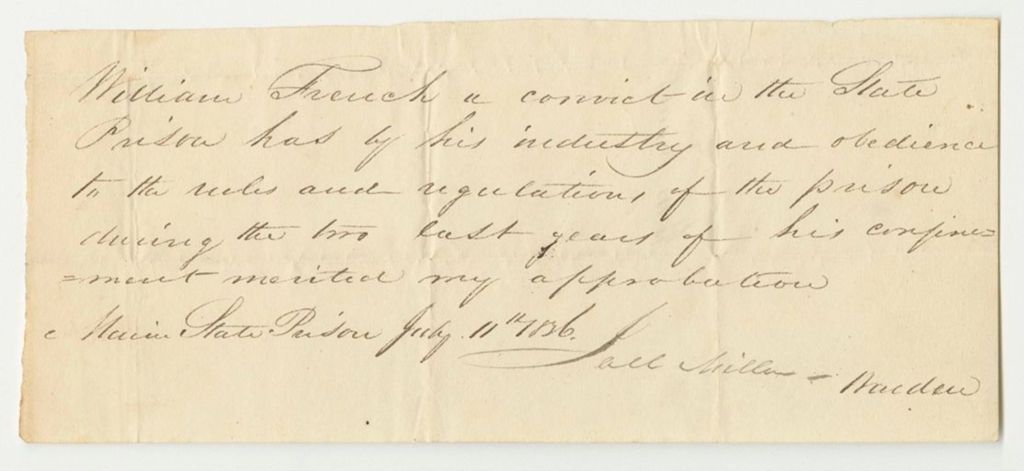 William French a convict in the State
Prison has by his industry and obedience
to the rules and regulations of the prison
during the two last years of his confine=
=ment merited my approbation
Maine State Prison July 11th 1836.
Joel Miller - Warden